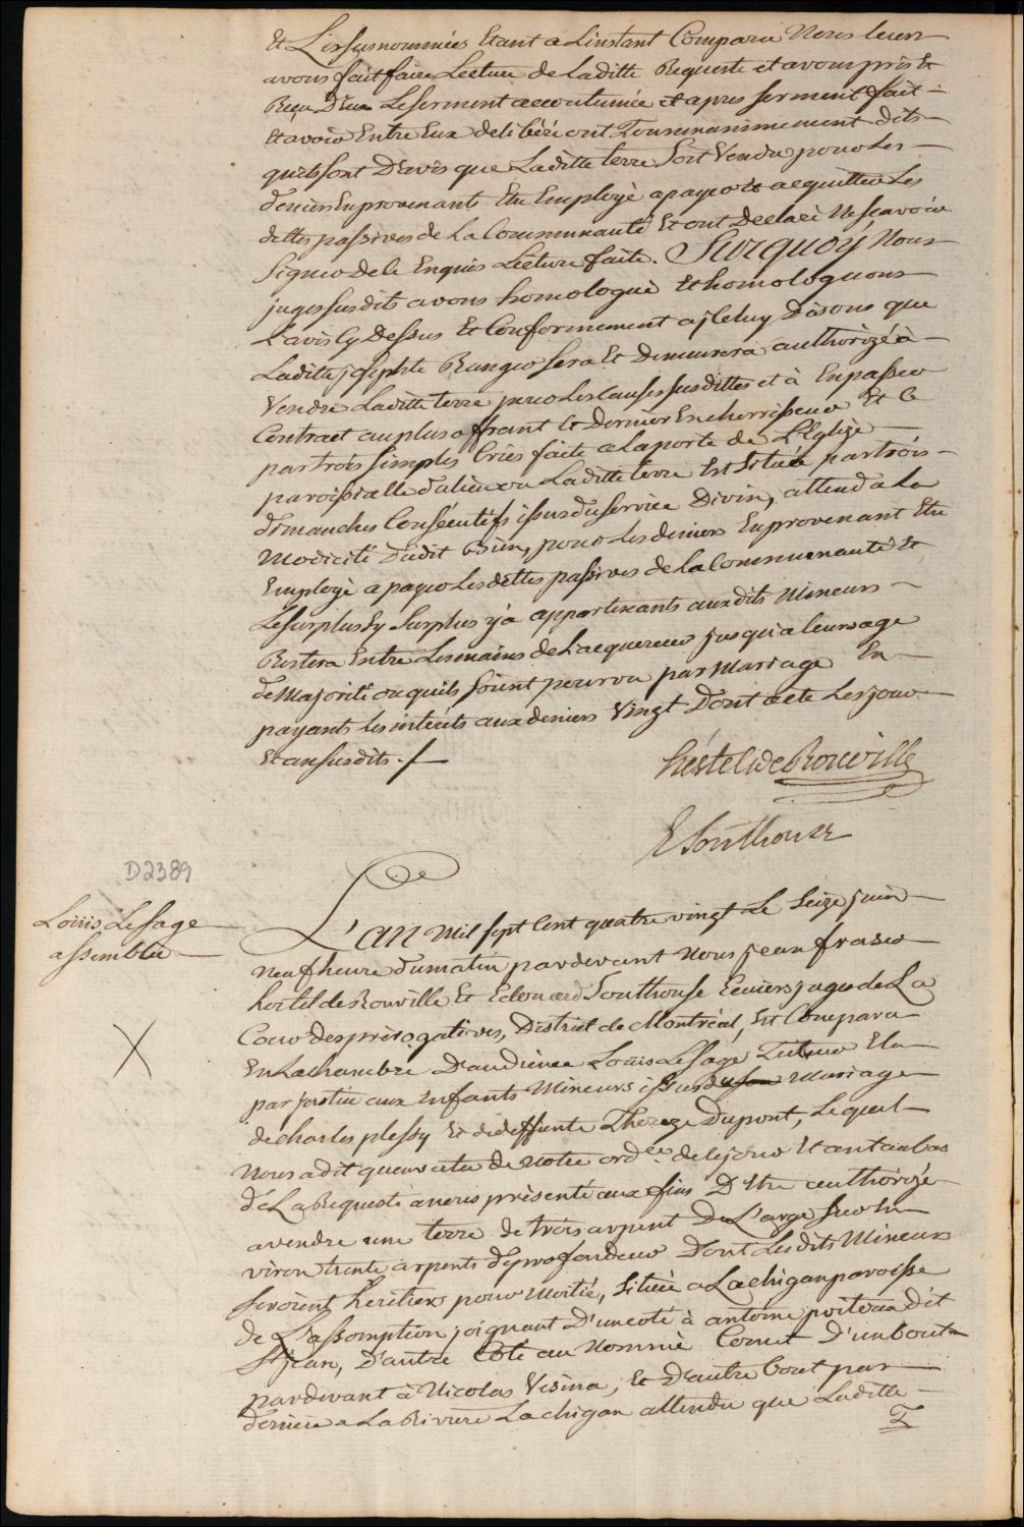 Et Les susnommées Etant a Linstant Comparu Nous leurs
avons fait faire Lecture de Laditte Requeste et avons pris et
Reçu D'eux Leserment accoutumée et apres serment fait
Etavoir Entre Eux delibéré ont Tous unanimement dits
quils sont D'avis que Laditte terre soit Vendu pour Les
deniers Enprovenants Etre Employé apayer et acquitter Les
dettes passives de La Communauté Et ont Declaré Ne sçavoir
signer de ce Enquis Lecture faite. Surquoy Nous
juges susdits avons homologué Et homologuons
L'avis Cy Dessus Et Conformement a jCeluy Disons que
Laditte josephte Ranger sera Et Demeurera authorizé à
Vendre Laditte terre pour Les Causes susdittes et à Enpasser
Contract au plus offrant & Dernier Encherrisseur Et Ce
par trois simples Criés faite a la porte de L'Eglise
paroissialle du lieu ou Laditte terre Est Située par trois
dimanches Consécutifs issus du service Divin, attendu La
Modicité Dudit Bien, pour Les deniers Enprovenant Etre
Employé a payer Les dettes passives de la Communauté Et
Lesurplus sy Surplus y'a appartenants auxdits Mineurs
Restera Entre Lesmains de L'acquereur jusqu'a leurs age
de Majorité ou quils soient pourvu par Mariage En
payants les interets aux deniers Vingt Dont acte Les jour
Et an susdits ./.
hertel de Rouville
E Southouse
D2389
Louis Lesage
assemblée
L'an Mil sept Cent quatre vingt Le Seize juin
Neuf heure du matin pardevant Nous jean frasois
hertel de Rouville Et Edouard Southouse Ecuiers juges de La
Cour des prérogatives, District de Montréal, Est Comparu
En Lachambre D'audience Louis Lesage Tuteur Elu
par justice aux Enfants Mineurs issus du Mariage
de charles plessy Et de deffunte Thereze Dupont, Lequel
Nous a dit quen vertu de Notre ord.ce de Cejour Et antaubas
de La Requeste anous présenté aux fins D'Etre authorizé
avendre une terre de trois arpent De L'arge sur En
viron trente arpents de profondeur Dont Les dits Mineurs
seroient heritiers pour Moitié, Située a Lachigan paroisse
de L'assomption joignant D'un coté à antoine poitevin dit
St jean, D'autre Coté au Nommé Cornet D'un bout
pardevant à Nicolas Vesina, Et D'autre bout par
derriere a La Riviere Lachigan attendu que Laditte
T